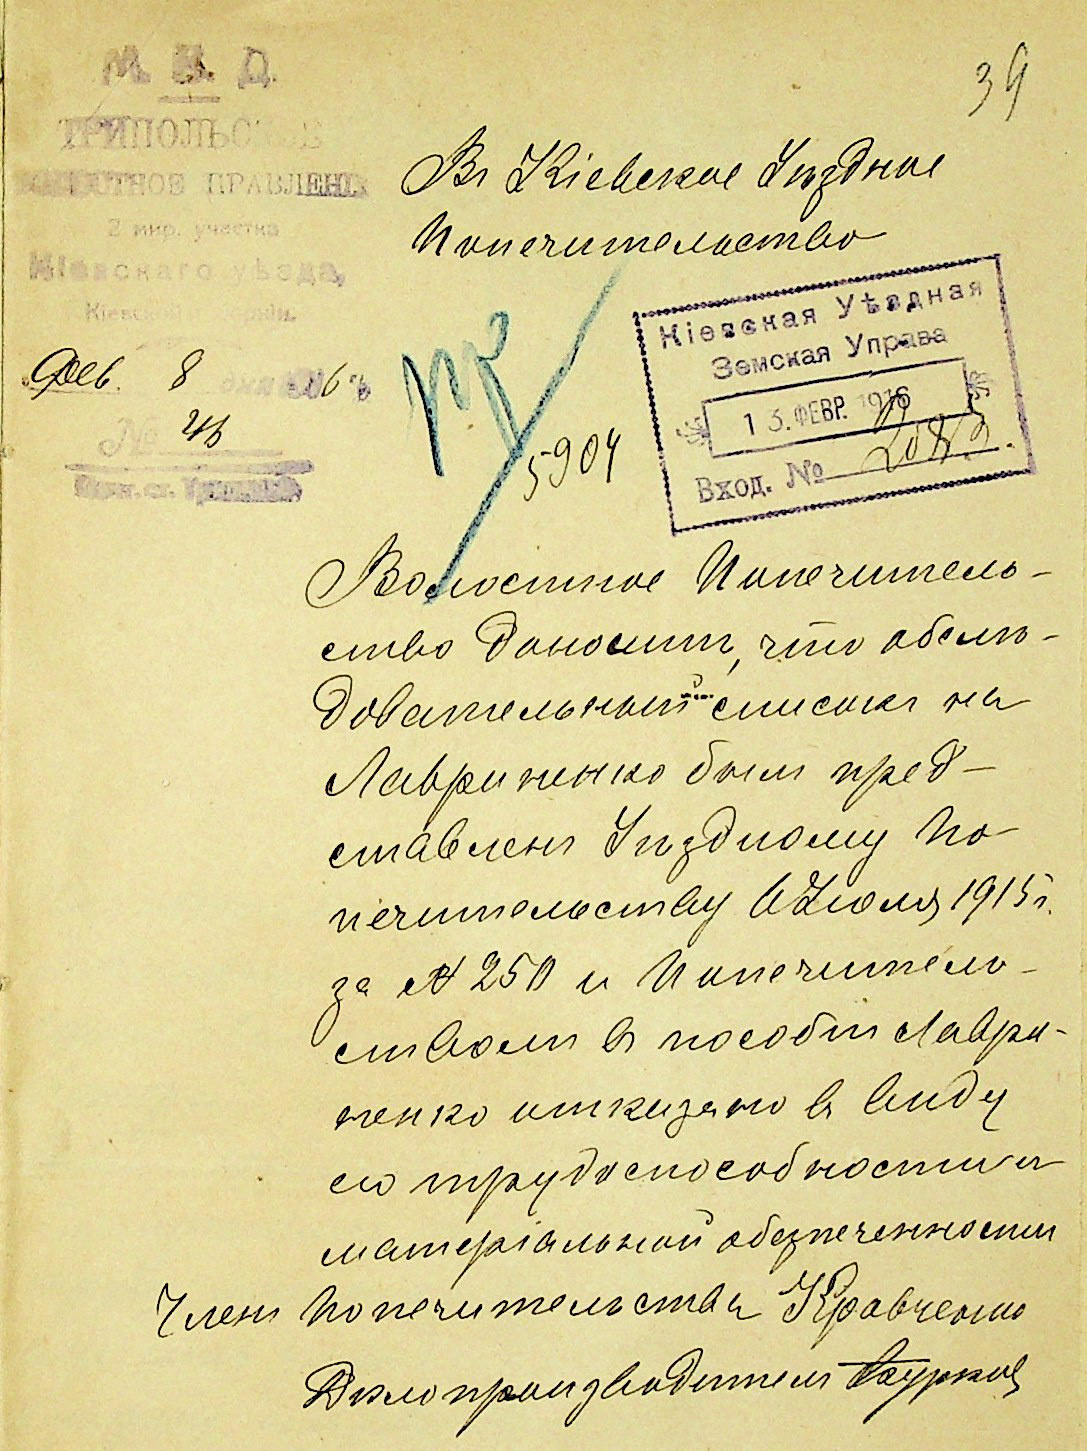 39
М. В. Д.
ТРИПОЛЬСКОЕ
ВОЛОСТНОЕ ПРАВЛЕНІЕ
2 мир. участка
Кіевскаго уѣзда,
Кіевской губерніи.
Фев. 8 дня 1916 г.
№ 46
Въ Кіевское Уѣздное
Попечительство
5904
Кіевская Уѣздная
Земская Управа
13. ФЕВР. 1916
Вход. №
Волостное Попечитель-
ство доноситъ, что обслѣ-
довательный списокъ на
Лавриненко былъ пред-
ставленъ Уѣздному По-
печительству 6 Іюля 1915 г.
за № 250 и Попечитель-
ствомъ въ пособіи Лаври-
ненко отказано въ виду
его трудоспособности и
матеріальной обезпеченности
Членъ Попечительства Кравченко
Дѣлопроизводитель